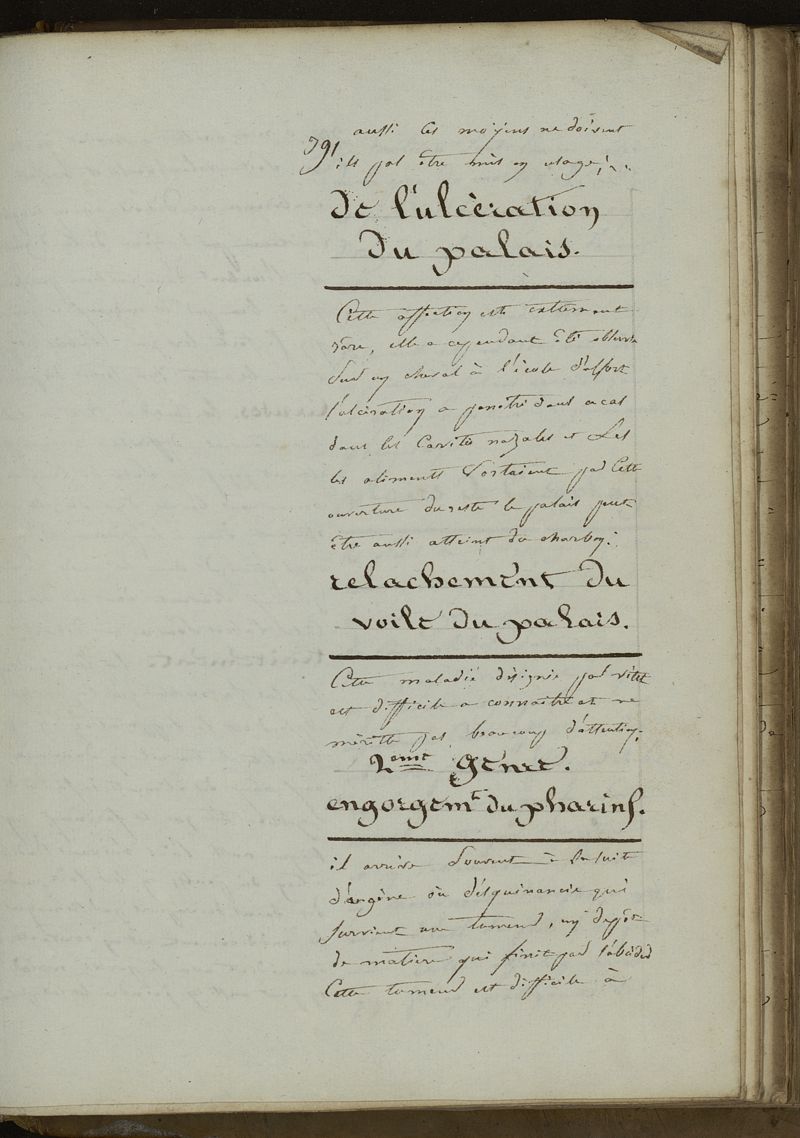 391
aussi ces moyens ne doivent
ils pas être mis en usage;
de l'ulcèration
du palais.
Cette affection est extremement
rare, elle a cependant été observé
sur un cheval à l'école d'alfort
l'ulcération a penetré dans ce cas
dans les cavités nazales et Les
les aliments sortaient par cette
ouverture du reste le palais peut
être aussi atteint du charbon.
relachement du
voile du palais.
Cette maladie désignée par vitet
est difficile a connaitre et ne
méritte pas beaucoup d'attention.
2eme genre.
engorgemt du pharins.
il arrive souvent à la suite
d'angine ou d'esquinancie qui
survient une tumeur, un depôt
de matiere qui finit par l'abcéder
Cette tumeur est difficile à